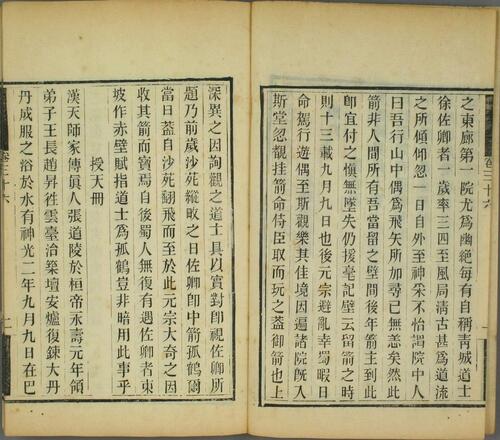 之東廊第一院尤爲幽絕每有自稱青城道士
徐佐卿者一歲率三四至風局清古甚爲道流
之所傾仰忽一日自外至神采不怡謂院中人
曰吾行山中偶爲飛矢所加尋已無恙矣然此
箭非人間所有吾留之壁間後年箭主到此
卽宜付之愼無墜失仍援毫記壁云留箭之時
則十三載九月九日也後元宗避亂幸蜀暇日
命駕行遊偶至斯觀樂其佳境因遍諸院旣入
斯堂忽覩挂箭命侍臣取而玩之蓋御箭也上
深異之因詢觀之道士具以實對卽視佐卿所
題乃前歲沙苑縱畋之日佐卿卽中箭孤鶴爾
當日蓋自沙苑翻飛而至於此元宗大奇之因
收其箭而寶焉自後蜀人無復有遇佐卿者東
坡作赤壁賦指道士爲孤鶴豈非暗用此事乎
授天冊
漢天師家傳眞人張道陵於桓帝永壽元年領
弟子王長趙昇往雲臺治築壇安爐復鍊大丹
丹成服之浴於水有神光二年九月九日在巴
卷三十六
卷三十六